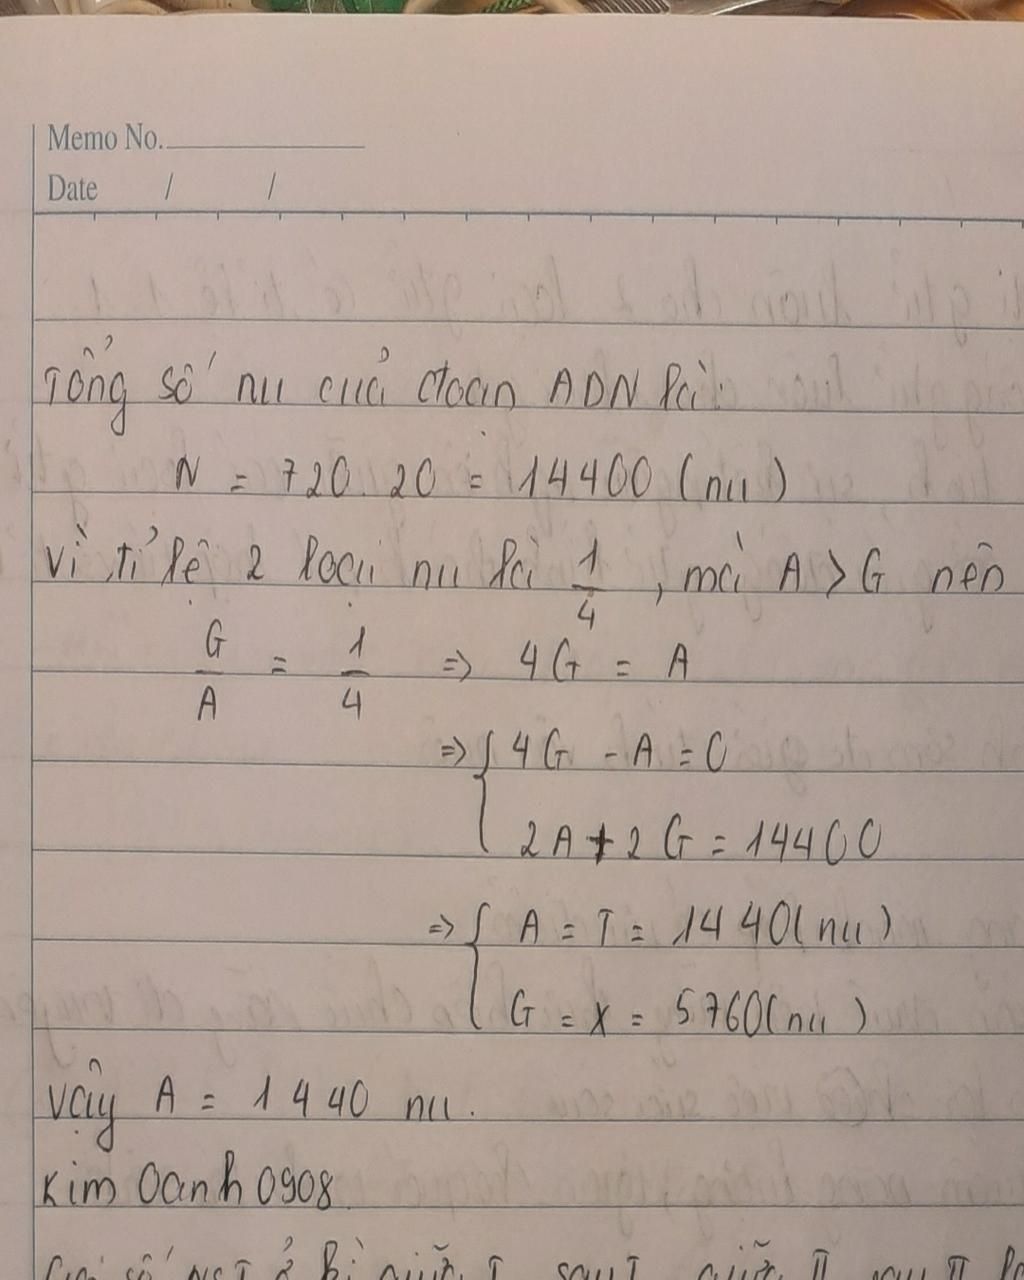 Memo No.
Date / /
Tổng số nu của đoạn ADN là:
N = 720.20 = 14400 (nu)
Vì tỉ lệ 2 loại nu là 1/4, mà A > G nên
G/A = 1/4 => 4G = A
=> { 4G - A = 0
2A + 2G = 14400
=> { A = T = 1440 (nu)
G = X = 5760 (nu)
Vậy A = 1440 nu.
Kim Oanh 0908